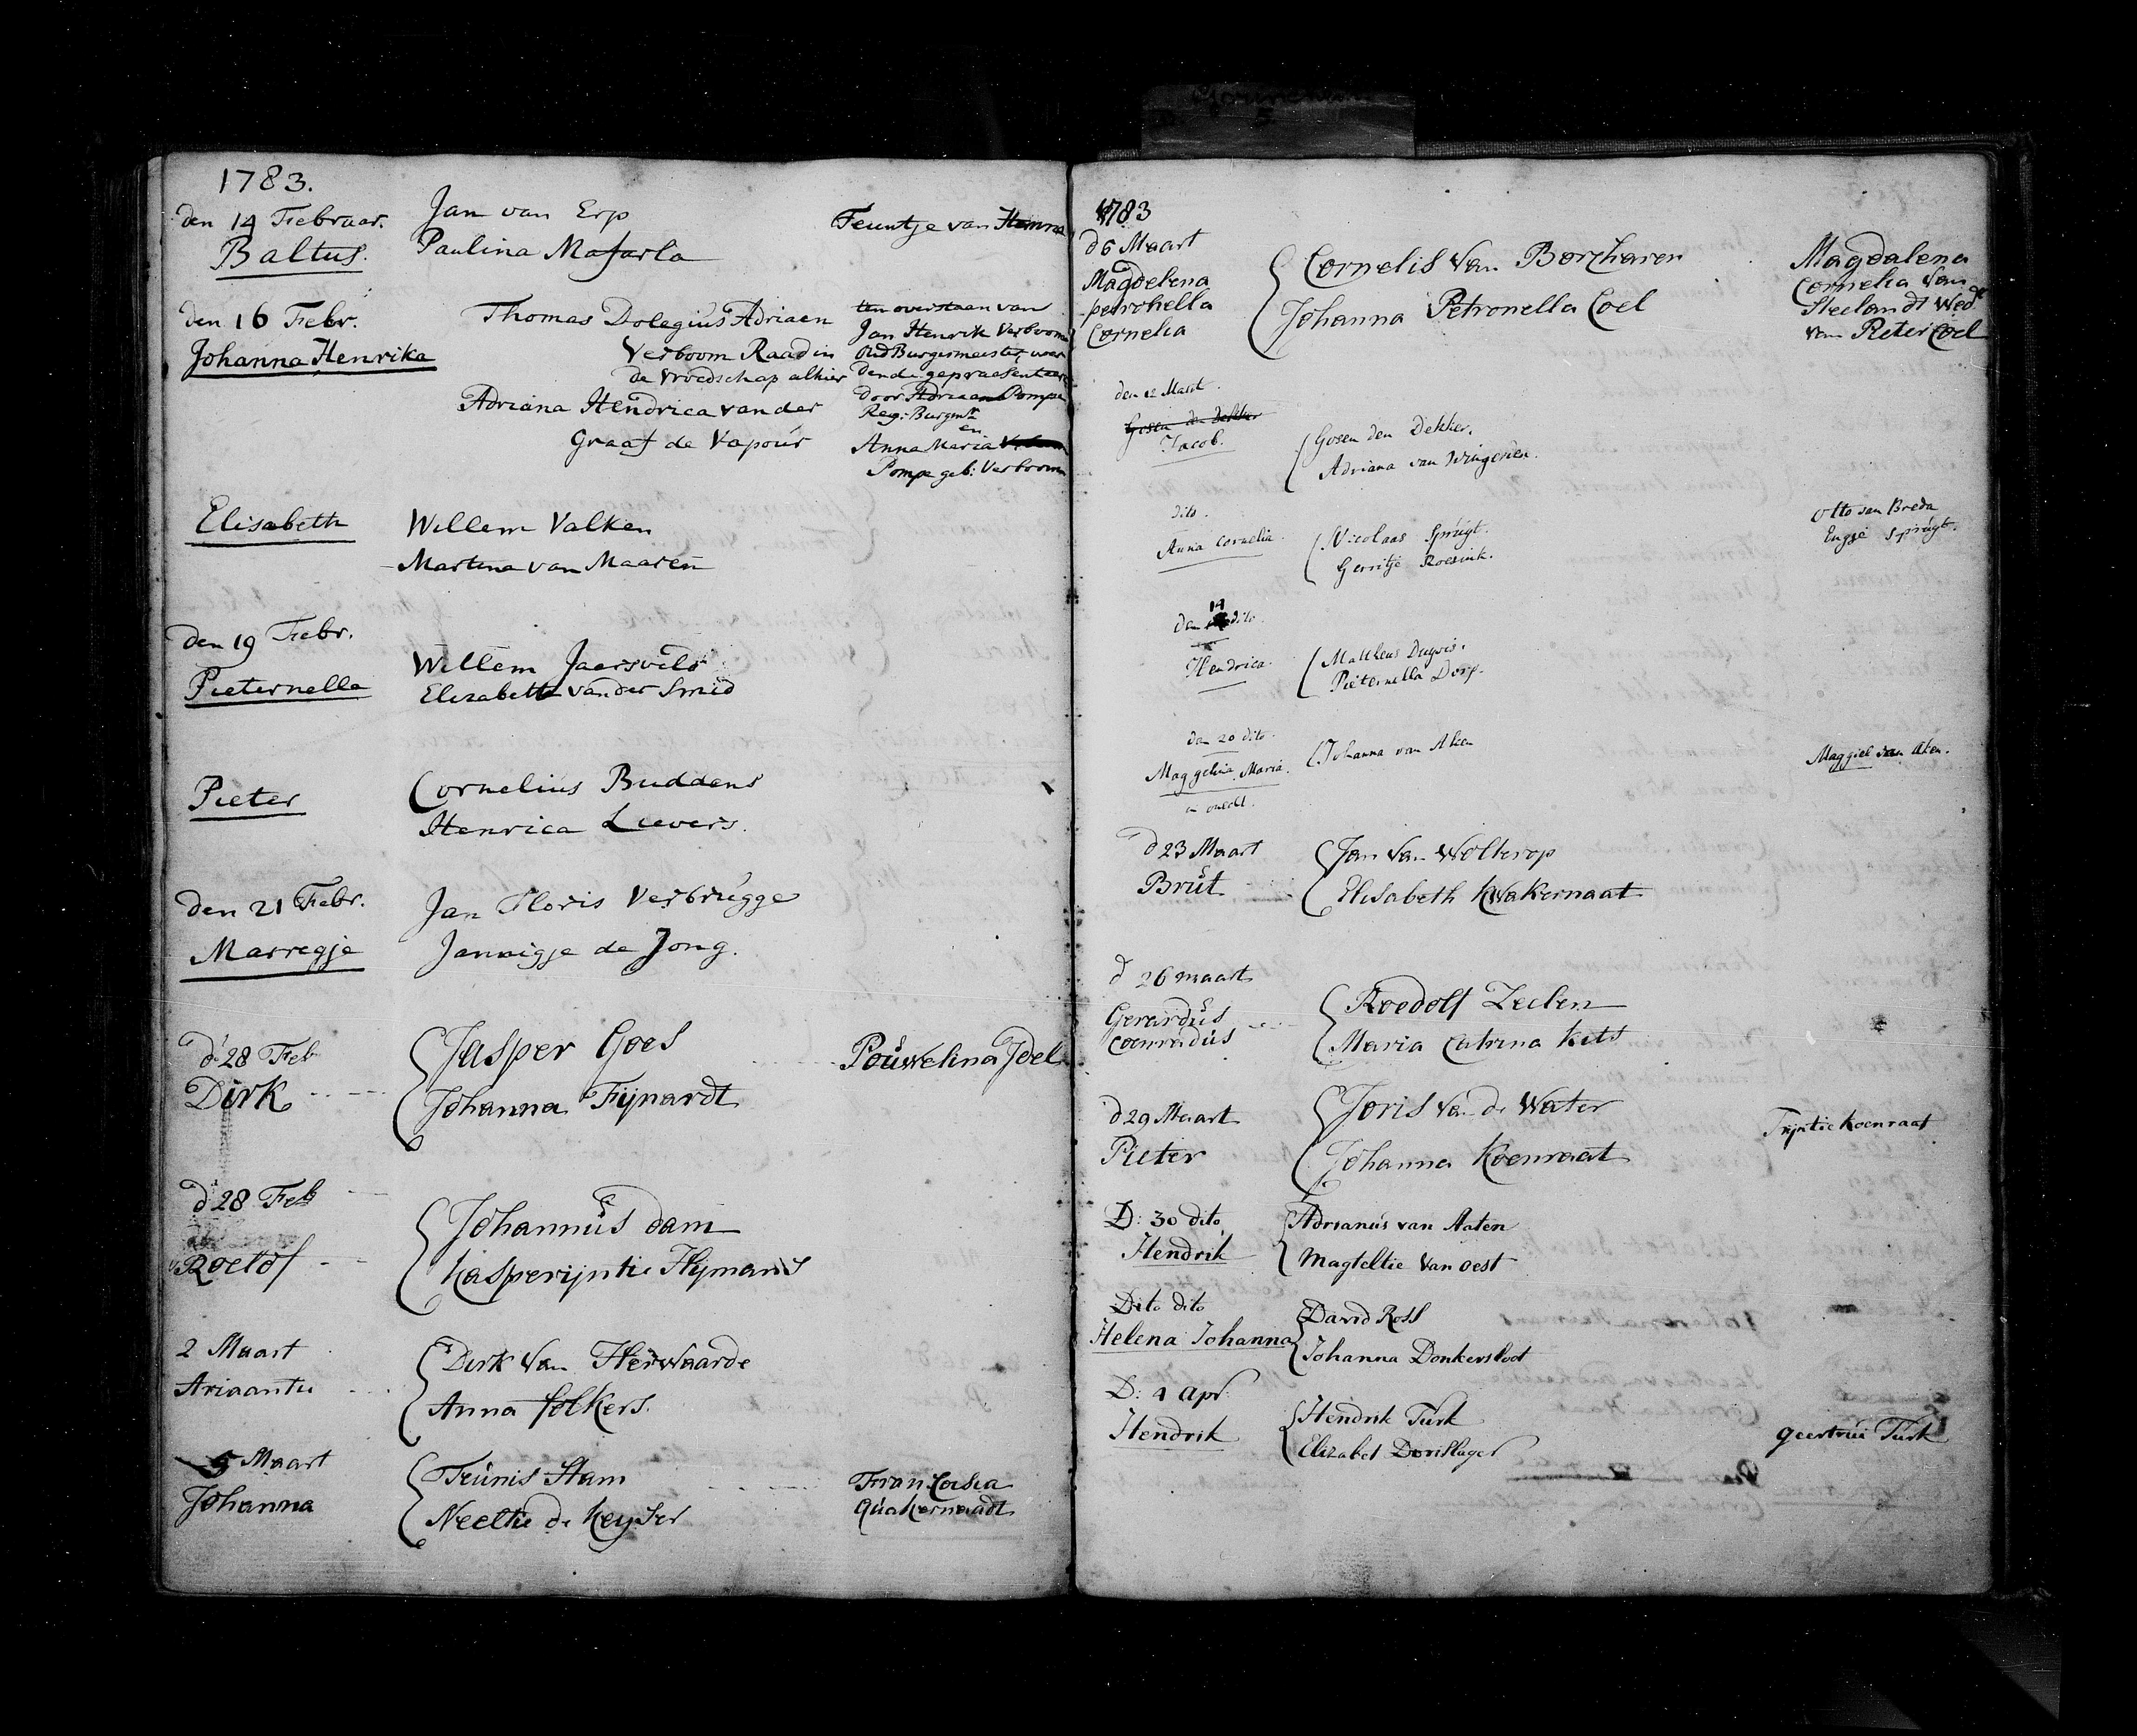 Gorinchem
5
1783.
den 14 Februar.
Baltus.
Jan van Erp
Paulina Mafarla
Teuntje van Hemna
den 16 Febr.
Johanna Henrika
Thomas Dolegius Adriaen
Verboom Raad in
de Vroedschap alhier
Adriana Hendrica van der
Graaf de Vapour
ten overstaen van
Jan Henrik Verboom
Oud Burgemeester, wor
dende gepraesenteert
door Adriaan Pompe
Reg: Burgmr
en
Anna Maria
Pompe geb: Verboom
Elisabeth
Willem Valken
Martina van Maaren
den 19 Febr.
Pieternella
Willem Jaarsveld
Elizabeth van der Smid
Pieter
Cornelius Buddens
Henrica Lievers.
den 21 Febr.
Marregje
Jan Floris Verbrugge
Jannigje de Jong.
d 28 Feb
Dirk
Jasper Goes
Johanna Fijnardt
Pouwelina Idel
d 28 Feb
Roelof
Johannus dam
Kasperijntie Hijmans
2 Maart
Ariaantie
Dirk van Herwaarde
Anna folkers.
5 Maart
Johanna
Teunis Stam
Neeltie de Keyser
Francoisa
Quakernaadt
1783
d 6 Maart
Magdelena
petronella
Cornelia
Cornelis van Borcharen
Johanna Petronella Coel
Magdalena
Cornelia van
Heelandt Wede
van Pieter Coel
den 12 Maart.
Gosen den dekker
Jacob.
Gosen den Dekker.
Adriana van Wingerden.
dito.
Anna Cornelia.
Nicolaas Spruijt.
Gerritje Roesink.
Otto van Breda
Engje Spruijt.
den 14 dito.
Hendrica.
Mattheus Duyvis.
Pieternella Dorp.
den 20 dito.
Maggelina Maria.
in onecht.
Johanna van Aken
Maggiel van Aken.
d 23 Maart
Brut
Jan van Wolterop
Elisabeth Kwakernaat
d 26 maart
Gerardus
Coenradus
Roedolf Zeelen
Maria Catrina Kits
d 29 Maart
Pieter
Joris van de Water
Johanna Koenraat
Trijntie Koenraat
D: 30 dito
Hendrik
Adrianus van Aaten
Magteltie van oest
Dito dito
Helena Johanna
David Ross
Johanna Donkersloot
D: 4 apr:
Hendrik
Hendrik Turk
Elizabet Dorislager
geertrui Turk